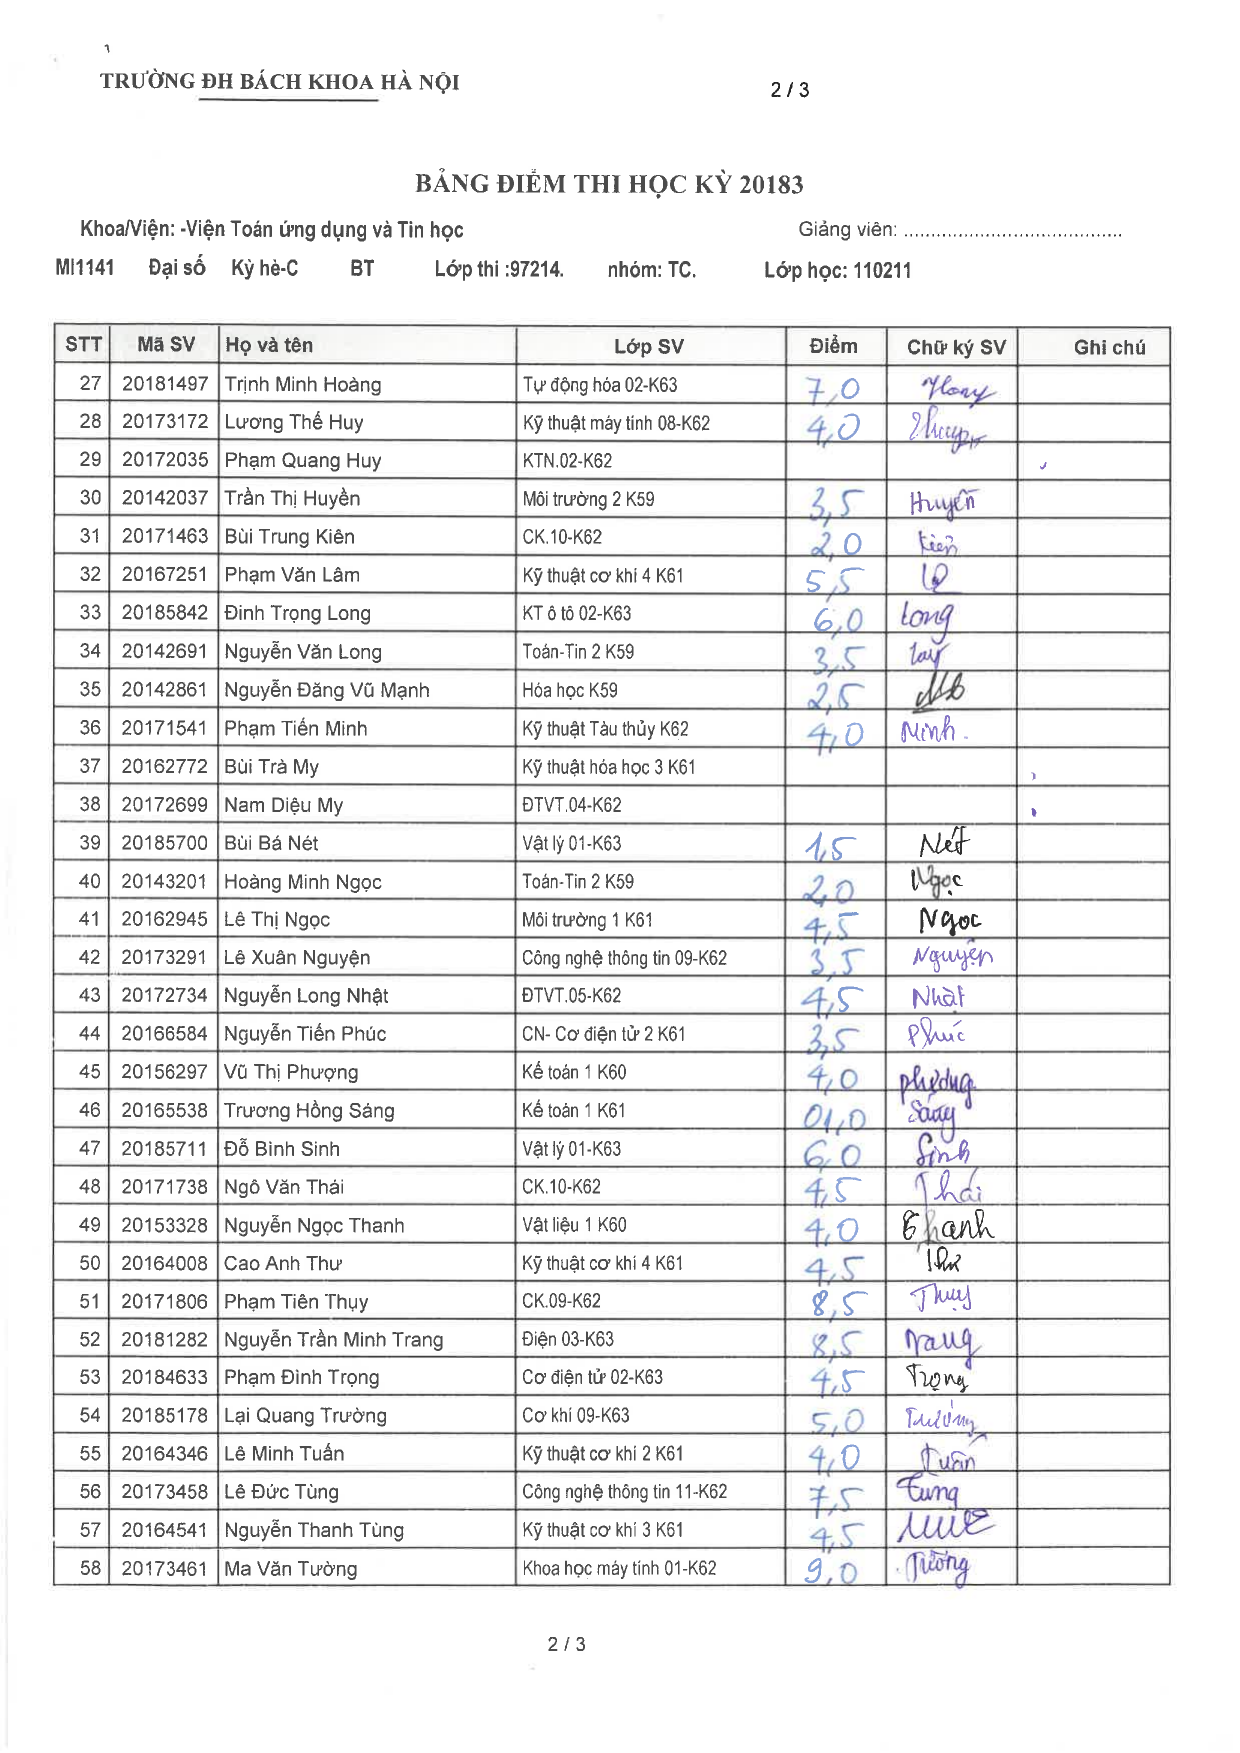 TRƯỜNG ĐH BÁCH KHOA HÀ NỘI
2 / 3
BẢNG ĐIỂM THI HỌC KỲ 20183
Khoa/Viện: -Viện Toán ứng dụng và Tin học Giảng viên: .........................................
MI1141 Đại số Kỳ hè-C BT Lớp thi :97214. nhóm: TC. Lớp học: 110211
STT Mã SV Họ và tên Lớp SV Điểm Chữ ký SV Ghi chú
27 20181497 Trịnh Minh Hoàng Tự động hóa 02-K63 7,0
28 20173172 Lương Thế Huy Kỹ thuật máy tính 08-K62 4,0
29 20172035 Phạm Quang Huy KTN.02-K62
30 20142037 Trần Thị Huyền Môi trường 2 K59 3,5 Huyền
31 20171463 Bùi Trung Kiên CK.10-K62 2,0 Kiên
32 20167251 Phạm Văn Lâm Kỹ thuật cơ khí 4 K61 5,5
33 20185842 Đinh Trọng Long KT ô tô 02-K63 6,0 Long
34 20142691 Nguyễn Văn Long Toán-Tin 2 K59 3,5
35 20142861 Nguyễn Đăng Vũ Mạnh Hóa học K59 2,5
36 20171541 Phạm Tiến Minh Kỹ thuật Tàu thủy K62 4,0 Minh.
37 20162772 Bùi Trà My Kỹ thuật hóa học 3 K61
38 20172699 Nam Diệu My ĐTVT.04-K62
39 20185700 Bùi Bá Nét Vật lý 01-K63 1,5 Nét
40 20143201 Hoàng Minh Ngọc Toán-Tin 2 K59 2,0 Ngọc
41 20162945 Lê Thị Ngọc Môi trường 1 K61 4,5 Ngọc
42 20173291 Lê Xuân Nguyện Công nghệ thông tin 09-K62 3,5 Nguyện
43 20172734 Nguyễn Long Nhật ĐTVT.05-K62 4,5 Nhật
44 20166584 Nguyễn Tiến Phúc CN- Cơ điện tử 2 K61 3,5 Phúc
45 20156297 Vũ Thị Phượng Kế toán 1 K60 4,0 Phượng
46 20165538 Trương Hồng Sáng Kế toán 1 K61 01,0 Sáng
47 20185711 Đỗ Bình Sinh Vật lý 01-K63 6,0 Sinh
48 20171738 Ngô Văn Thái CK.10-K62 4,5 Thái
49 20153328 Nguyễn Ngọc Thanh Vật liệu 1 K60 4,0 Thanh
50 20164008 Cao Anh Thư Kỹ thuật cơ khí 4 K61 4,5 Thư
51 20171806 Phạm Tiên Thụy CK.09-K62 8,5 Thụy
52 20181282 Nguyễn Trần Minh Trang Điện 03-K63 8,5 Trang
53 20184633 Phạm Đình Trọng Cơ điện tử 02-K63 4,5 Trọng
54 20185178 Lại Quang Trường Cơ khí 09-K63 5,0 Trường
55 20164346 Lê Minh Tuấn Kỹ thuật cơ khí 2 K61 4,0 Tuấn
56 20173458 Lê Đức Tùng Công nghệ thông tin 11-K62 7,5 Tùng
57 20164541 Nguyễn Thanh Tùng Kỹ thuật cơ khí 3 K61 4,5
58 20173461 Ma Văn Tường Khoa học máy tính 01-K62 9,0 Tường
2 / 3